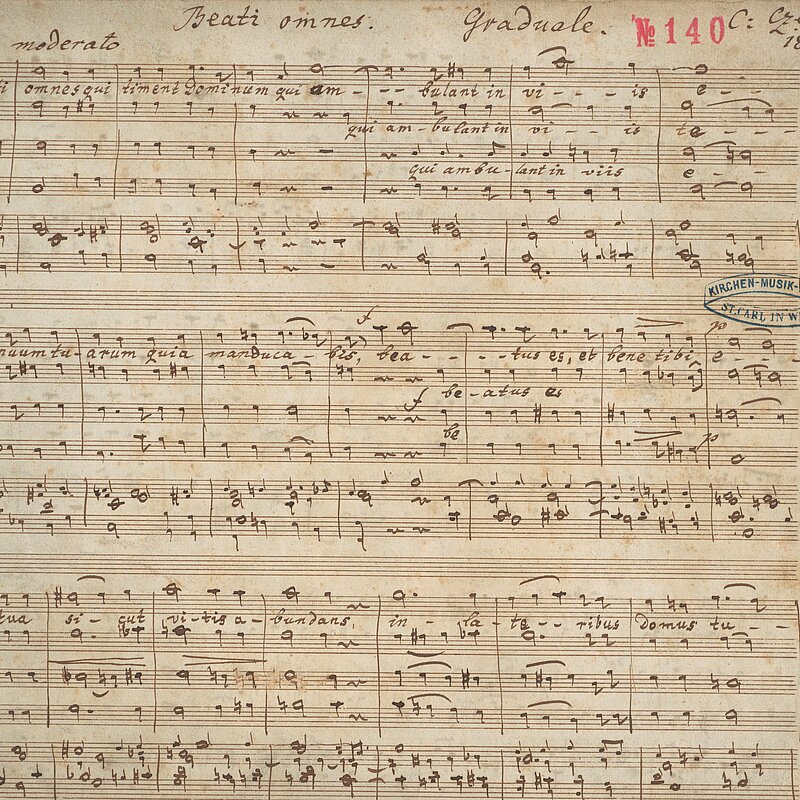 Beati omnes. Graduale. № 140 C:
moderato
omnes qui timent Dominum qui am- - - bulant in vi - - - is e - - -
qui am-bulant in vi - - is te - - -
qui ambu-lant in viis e - -
KIRCHEN-MUSIK-
ST. CARL IN W
f p
nuum tu-arum quia manduca-bis, bea- - - -tus es, et bene tibi e - - -
f be-atus es
be p
tua si-cut vi-tis a-bundans, in - la-te- - ribus domus tu- -